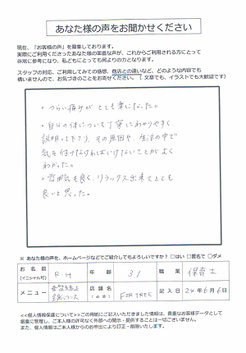 あなた様の声をお聞かせください
現在、「お客様の声」を募集しております。
実際にご利用くださったあなた様の率直な声が、これからご利用される方にとって
非常に参考になり、私どもにとっても何よりの力となります。
スタッフの対応、ご利用してみての感想、他店との違いなど、どのような内容でも
構いませんので、お気づきのことをお寄せください。（文章でも、イラストでも大歓迎です）
・つらい痛みがとても楽になった。
・自分の体について丁寧にわかりやすく
説明して下さり、その原因や生活の中で
気を付けなければいけないことがよく
わかった。
・雰囲気も良く、リラックス出来てとても
良いと思った。
※ あなた様の声を、ホームページなどでご紹介してもよろしいですか？ □はい □匿名で □ダメ
お名前
(イニシャル可)
R.H
年齢
31
職業
保育士
メニュー
店舗
(○○)
FOR TREE
記入日
26年6月6日